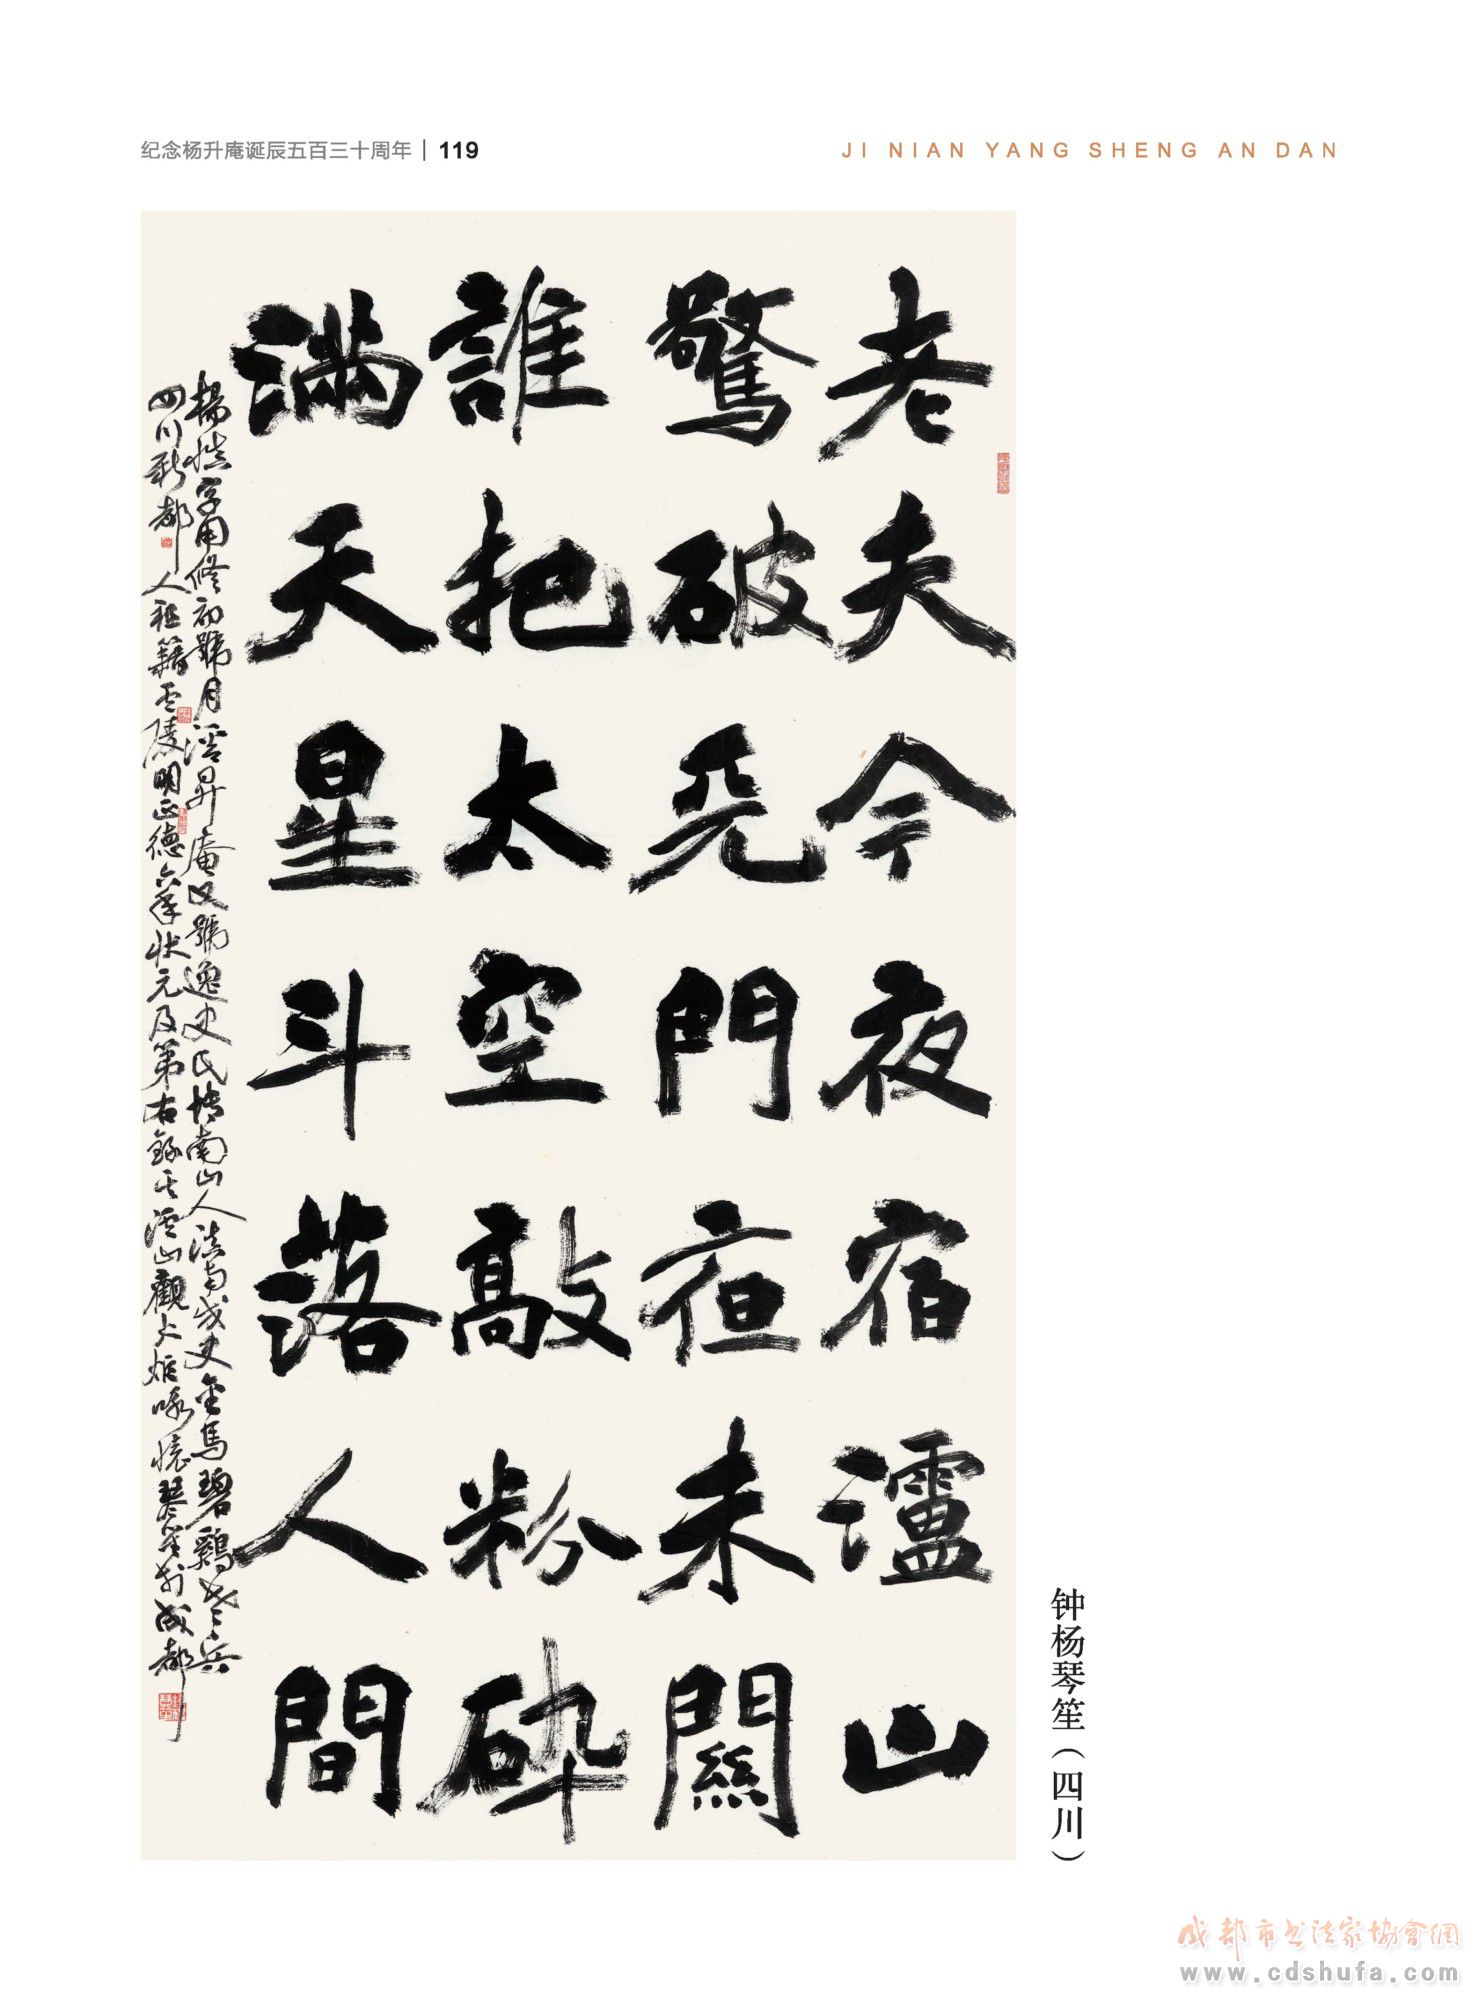 纪念杨升庵诞辰五百三十周年 | 119
JI NIAN YANG SHENG AN DAN
老夫今夜宿瀘山
驚破天門夜未關
誰把太空敲粉碎
滿天星斗落人間
楊慎字用修初號月溪昇庵又號逸史氏博南山人滇南戍史金馬碧鷄老兵
四川新都人祖籍廬陵明正德六年状元及第右錄其泸山觀火炬咏懷琴笙於成都
钟杨琴笙（四川）
成都市书法家協會網
www.cdshufa.com